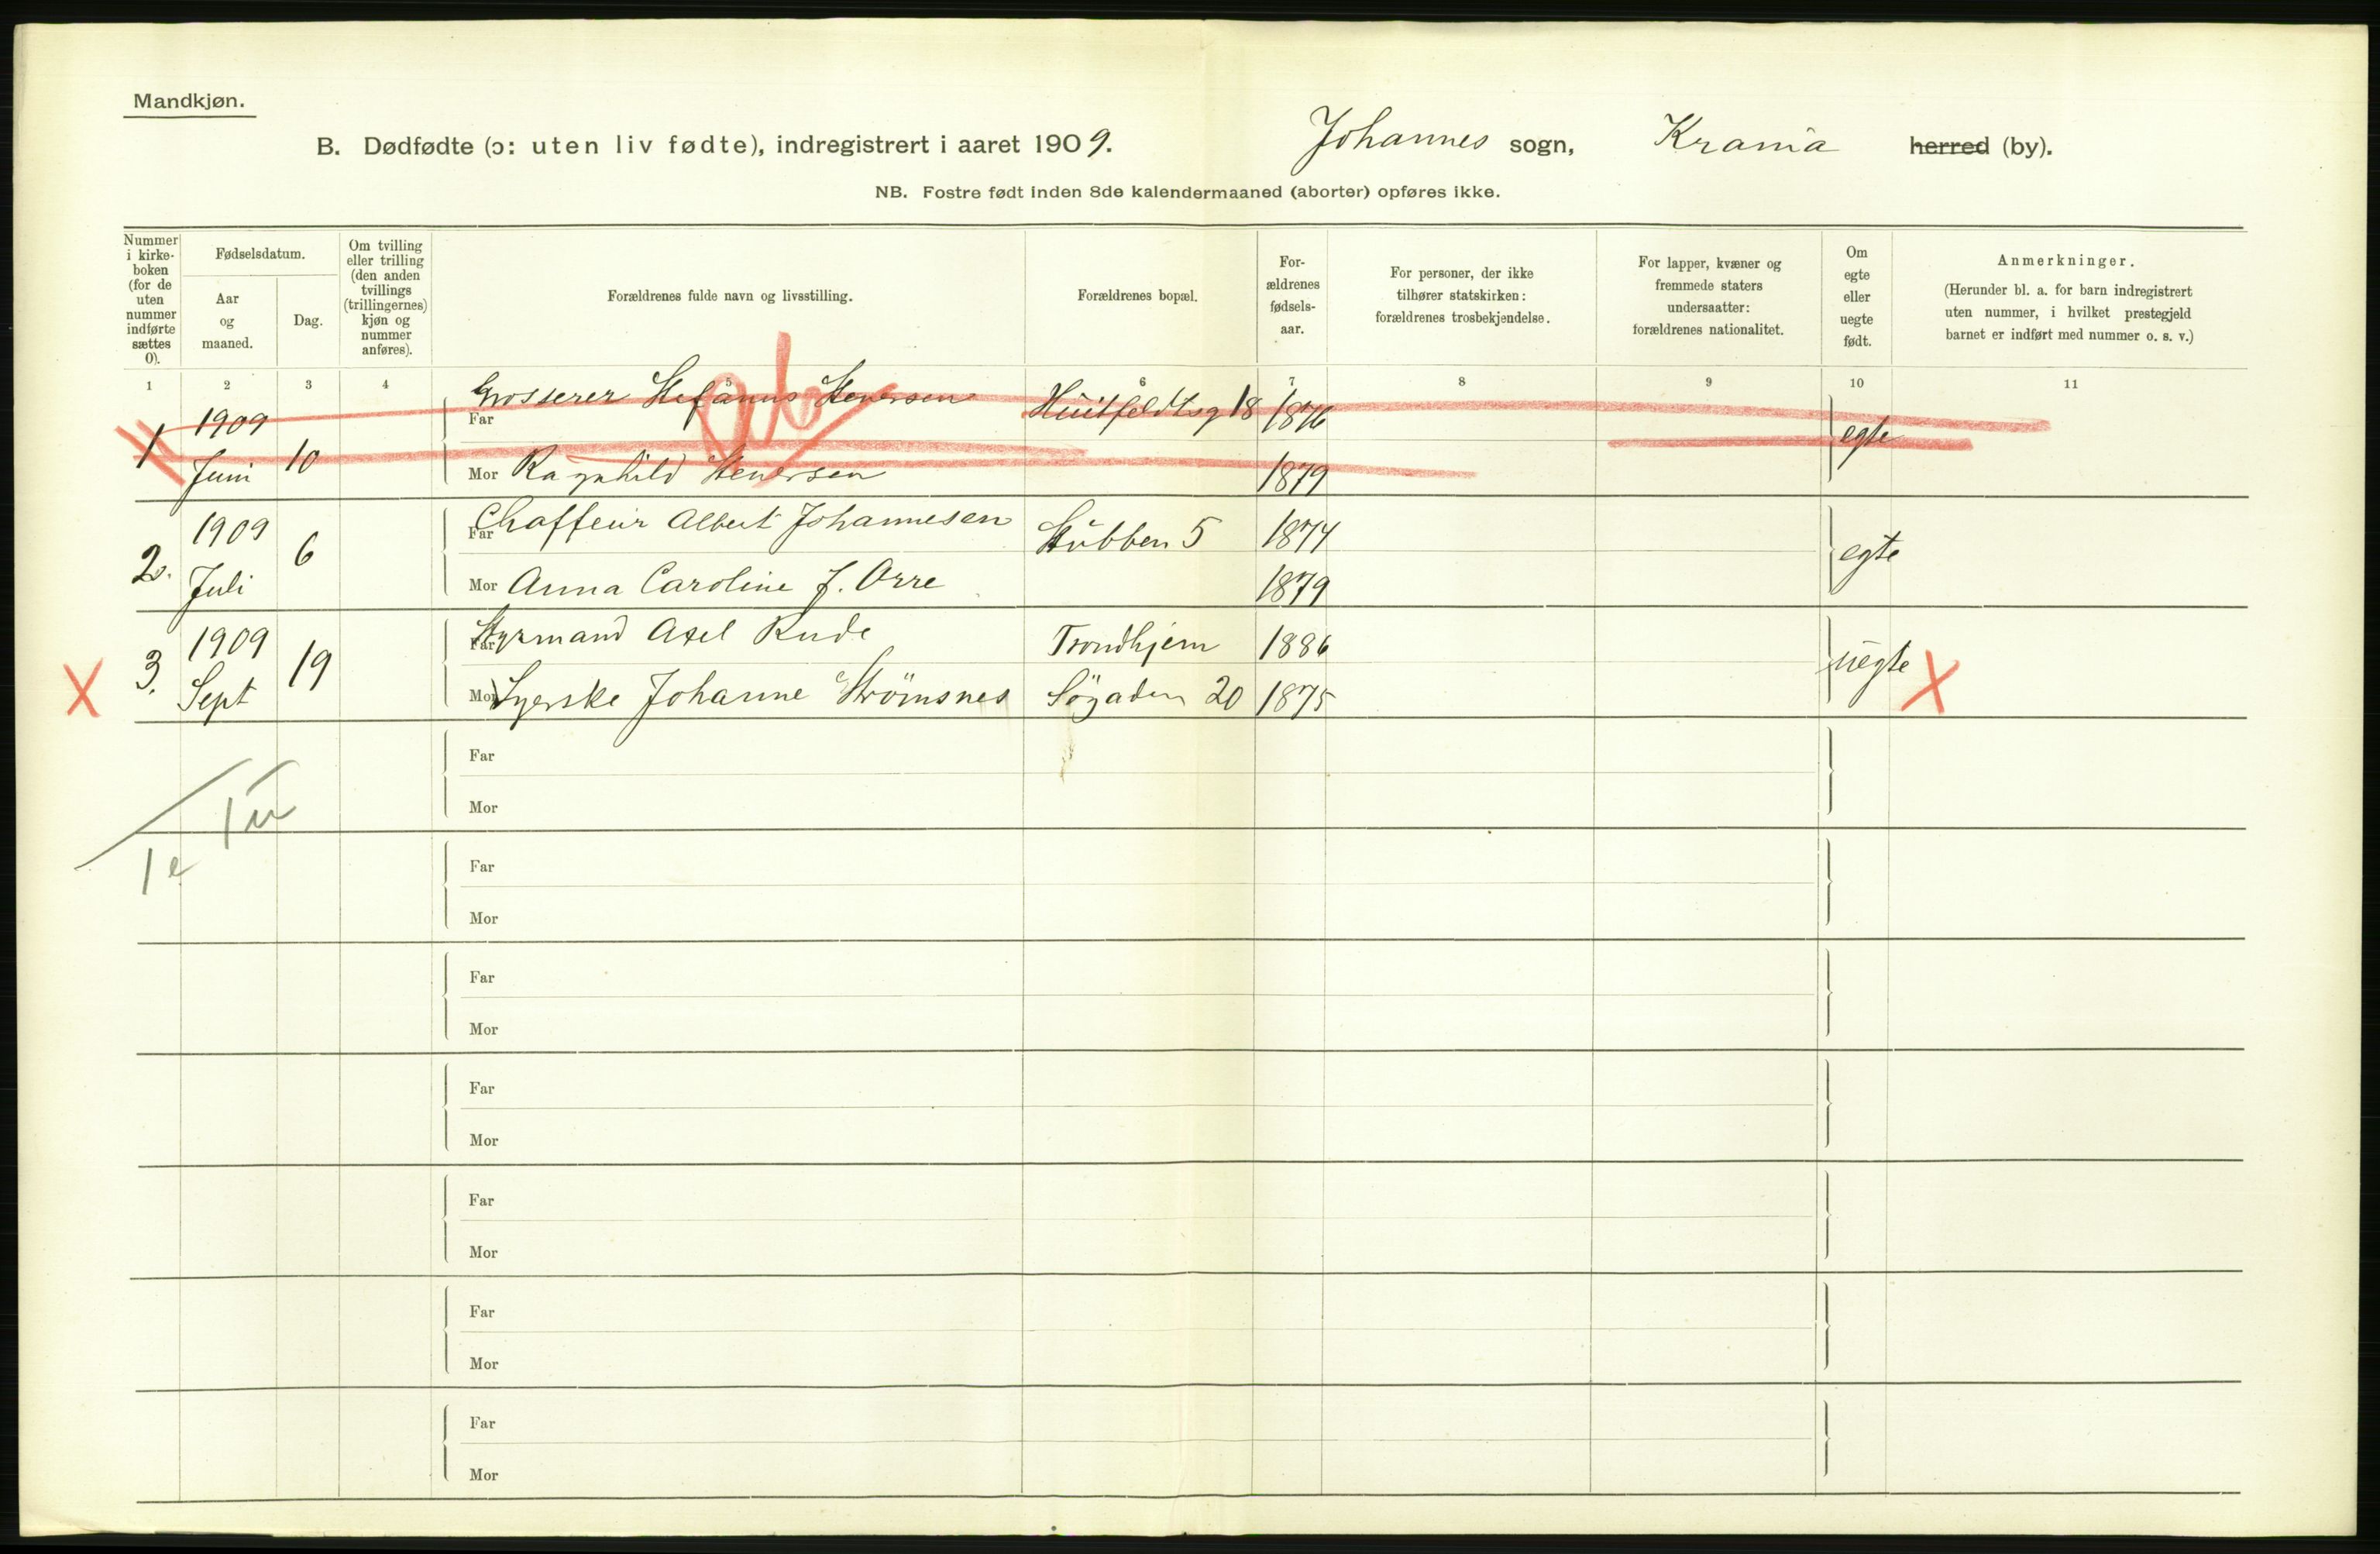 Mandkjøn.
B. Dødfødte (ɔ: uten liv fødte), indregistrert i aaret 1909. Johannes sogn, Krania herred (by).
NB. Fostre født inden 8de kalendermaaned (aborter) opføres ikke.
Nummer i kirke-boken (for de uten nummer indførte sættes 0).
Fødselsdatum.
Aar og maaned.
Dag.
Om tvilling eller trilling (den anden tvillings (trillingernes) kjøn og nummer anføres).
Forældrenes fulde navn og livsstilling.
Forældrenes bopæl.
For-ældrenes fødsels-aar.
For personer, der ikke tilhører statskirken: forældrenes trosbekjendelse.
For lapper, kvæner og fremmede staters undersaatter: forældrenes nationalitet.
Om egte eller uegte født.
Anmerkninger.
(Herunder bl. a. for barn indregistrert uten nummer, i hvilket prestegjeld barnet er indført med nummer o. s. v.)
1 2 3 4 5 6 7 8 9 10 11
1 1909 Juni 10 Far Grosserer Stefanus Stenersen Huitfeldtsg 18 1876 egte
Mor Ragnhild Stenersen 1879
2. 1909 Juli 6 Far Chaffeur Albert Johannesen Stubben 5 1874 egte
Mor Anna Caroline J. Orre 1879
X 3. 1909 Sept 19 Far Styrmand Axel Rude Trondhjem 1886 uegte X
Mor Syerske Johanne Strömsnes Sögaden 20 1875
Far
1 u
Mor
1 e
Far
Mor
Far
Mor
Far
Mor
Far
Mor
Far
Mor
Far
Mor